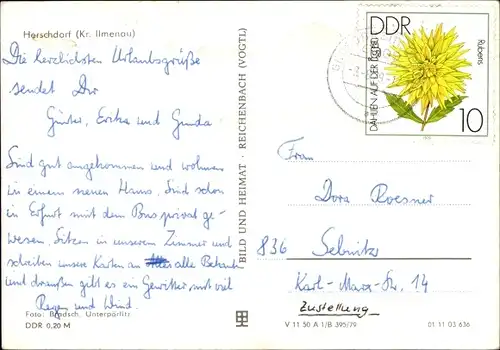 Herschdorf (Kr. Ilmenau)
Die herzlichsten Urlaubsgrüße
sendet Dir
Günter, Erika und Gunda
Sind gut angekommen und wohnen
in einem neuen Haus. Sind schon
in Erfurt mit dem Bus privat ge-
wesen. Sitzen in unserem Zimmer und
schreiben unsere Karten an alle Bekannten
und draußen gibt es ein Gewitter mit viel
Regen und Wind.
Foto: Bandsch, Unterpörlitz
DDR 0,20 M
BILD UND HEIMAT · REICHENBACH (VOGTL)
DDR
DAHLIEN AUF DER
Rubens
10
Frau
Dora Roesner
836 Sebnitz
Karl-Marx-Str. 14
Zustellung
V 11 50 A 1/B 395/79
01 11 03 636